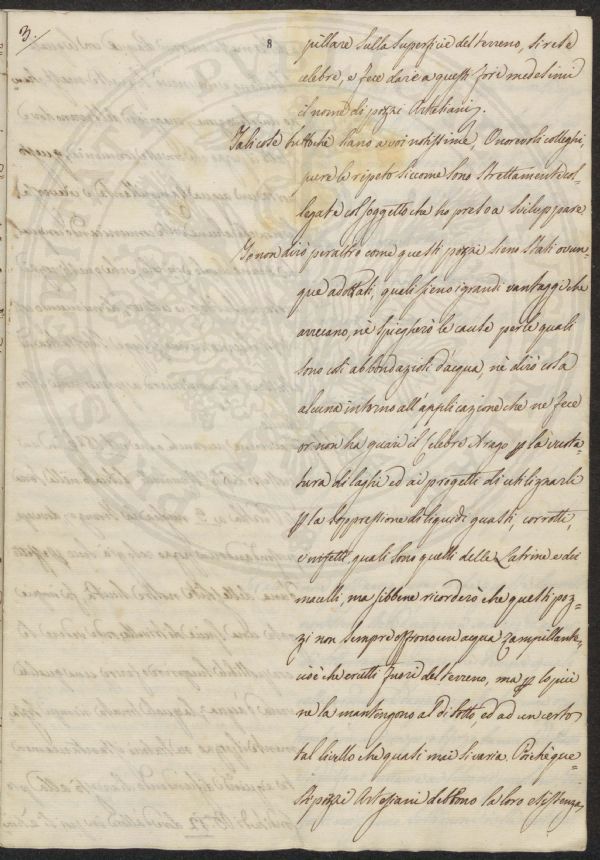 3./
8
pillare sulla superficie del terreno, si rese
celebre, e fece dare a questi fori medesimi
il nome di pozzi Artesiani.
Tali cose tuttochè siano a voi notissime, Onorevoli colleghi,
pure le ripeto siccome sono strettamente col-
legate col soggetto che ho preso a sviluppare.
Io non dirò peraltro come questi pozzi sieno stati ovun-
que adottati, quali sieno i grandi vantaggi che
arrecano, nè spiegherò le cause per le quali
sono così abbondazioli d'acqua, nè dirò cosa
alcuna intorno all'applicazione che ne fece
or non ha guari il celebre Arago per la
tura di laghi ed ai progetti di utilizzarli
per la soppressione di liquidi guasti, corrotti,
e infetti quali sono quelli delle Latrine e dei
macelli, ma sibbene ricorderò che questi poz-
zi non sempre offrono un acqua zampillante,
cioè che erutti fuori del terreno, ma per lo più
ne la mantengono al di sotto, ed ad un certo
tal livello che quasi mai si varia. Poichè que-
sti pozzi Artesiani debbono la loro esistenza,